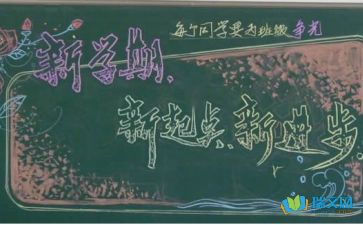 每个同学要为班级争光
新学期、
新起点、新进步
瑞文网